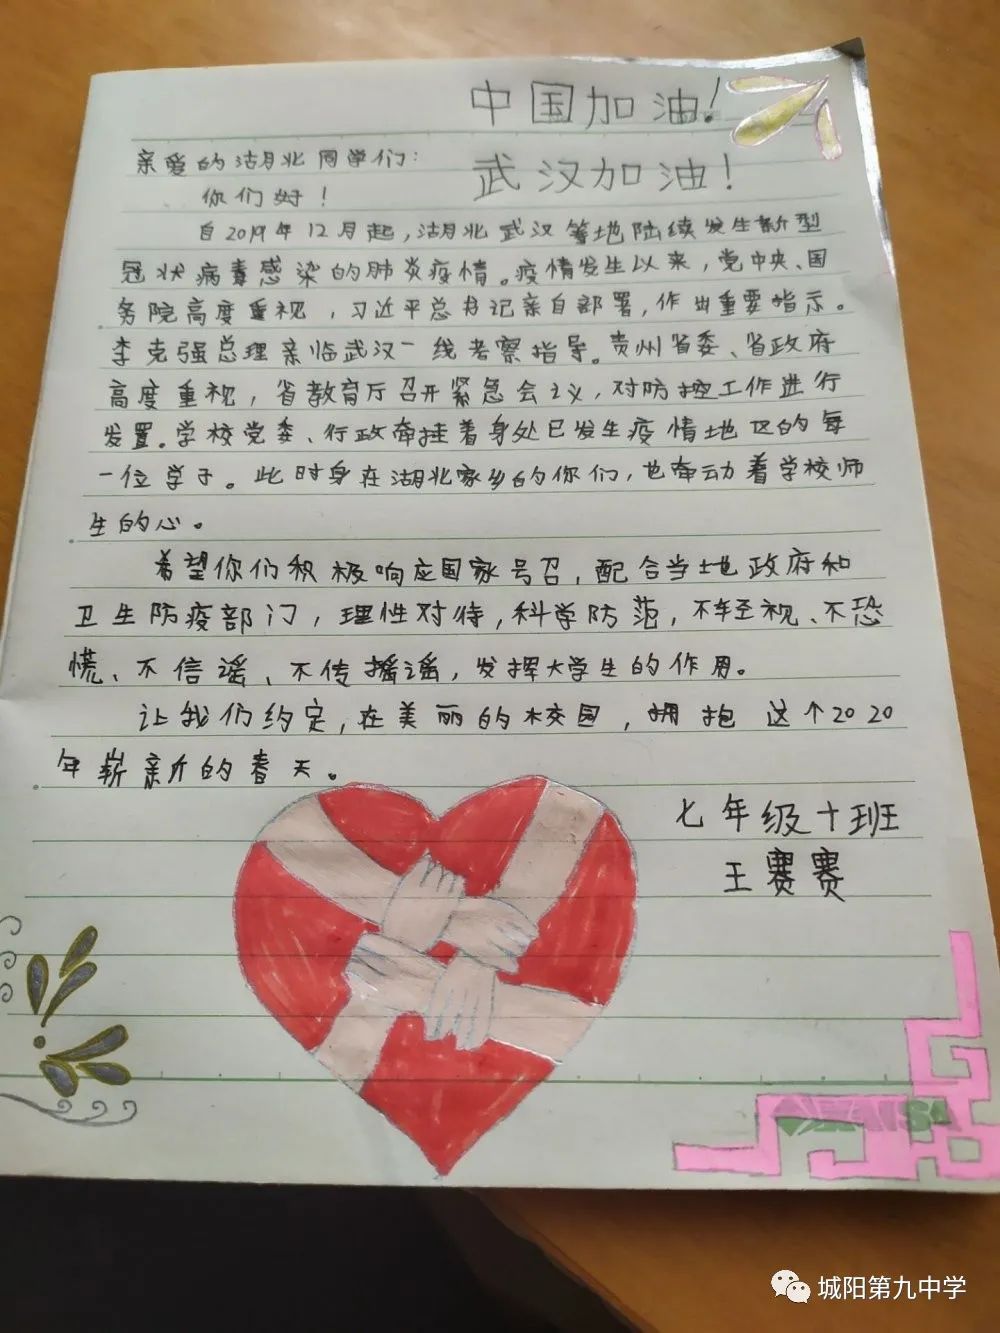 中国加油!
武汉加油!
亲爱的湖北同学们:
你们好!
自2019年12月起,湖北武汉等地陆续发生新型
冠状病毒感染的肺炎疫情。疫情发生以来,党中央、国
务院高度重视,习近平总书记亲自部署,作出重要指示。
李克强总理亲临武汉一线考察指导。贵州省委、省政府
高度重视,省教育厅召开紧急会议,对防控工作进行
发置。学校党委、行政牵挂着身处已发生疫情地区的每
一位学子。此时身在湖北家乡的你们,也牵动着学校师
生的心。
希望你们积极响应国家号召,配合当地政府和
卫生防疫部门,理性对待,科学防范,不轻视、不恐
慌、不信谣、不传摇谣,发挥大学生的作用。
让我们约定,在美丽的校园,拥抱这个2020
年崭新的春天。
七年级十班
王赛赛
城阳第九中学